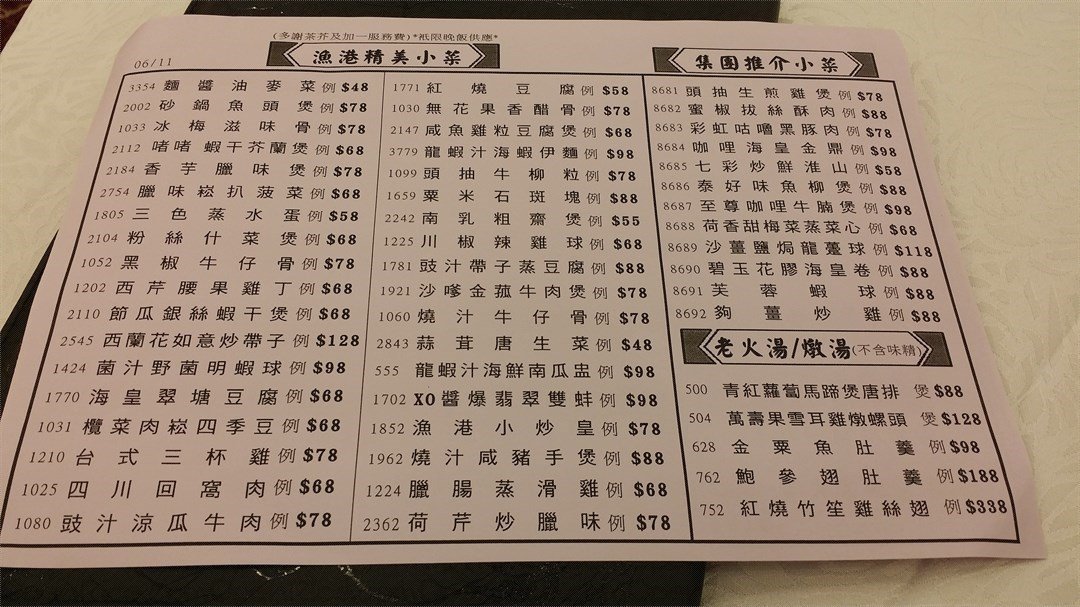 (多謝茶芥及加一服務費)*祇限晚飯供應*
06/11
漁港精美小菜
3354 麵醬油麥菜 例 $48
2002 砂鍋魚頭煲 例 $78
1033 冰梅滋味骨 例 $78
2112 啫啫蝦干芥蘭煲 例 $68
2184 香芋臘味煲 例 $78
2754 臘味崧扒菠菜 例 $68
1805 三色蒸水蛋 例 $58
2104 粉絲什菜煲 例 $68
1052 黑椒牛仔骨 例 $78
1202 西芹腰果雞丁 例 $68
2110 節瓜銀絲蝦干煲 例 $68
2545 西蘭花如意炒帶子 例 $128
1424 菌汁野菌明蝦球 例 $98
1770 海皇翠塘豆腐 例 $68
1031 欖菜肉崧四季豆 例 $68
1210 台式三杯雞 例 $78
1025 四川回窩肉 例 $68
1080 豉汁涼瓜牛肉 例 $78
1771 紅燒豆腐 例 $58
1030 無花果香醋骨 例 $78
2147 咸魚雞粒豆腐煲 例 $68
3779 龍蝦汁海蝦伊麵 例 $98
1099 頭抽牛柳粒 例 $78
1659 粟米石斑塊 例 $88
2242 南乳粗齋煲 例 $55
1225 川椒辣雞球 例 $68
1781 豉汁帶子蒸豆腐 例 $88
1921 沙嗲金菰牛肉煲 例 $78
1060 燒汁牛仔骨 例 $78
2843 蒜茸唐生菜 例 $48
555 龍蝦汁海鮮南瓜盅 例 $98
1702 XO醬爆翡翠雙蚌 例 $98
1852 漁港小炒皇 例 $78
1962 燒汁咸豬手煲 例 $88
1224 臘腸蒸滑雞 例 $68
2362 荷芹炒臘味 例 $78
集團推介小菜
8681 頭抽生煎雞煲 例 $78
8682 蜜椒拔絲酥肉 例 $88
8683 彩虹咕嚕黑豚肉 例 $78
8684 咖哩海皇金鼎 例 $98
8685 七彩炒鮮淮山 例 $58
8686 泰好味魚柳煲 例 $88
8687 至尊咖哩牛腩煲 例 $98
8688 荷香甜梅菜蒸菜心 例 $68
8689 沙薑鹽焗龍躉球 例 $118
8690 碧玉花膠海皇卷 例 $88
8691 芙蓉蝦球 例 $88
8692 夠薑炒雞 例 $88
老火湯/燉湯(不含味精)
500 青紅蘿蔔馬蹄煲唐排 煲 $88
504 萬壽果雪耳雞燉螺頭 煲 $128
628 金粟魚肚羹 例 $98
762 鮑參翅肚羹 例 $188
752 紅燒竹笙雞絲翅 例 $338